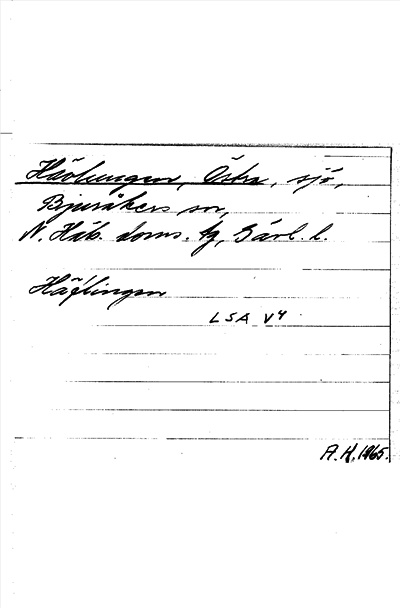 Hävlingen, Östra, sjö,
Bjuråkers sn,
N. Häls. doms. tg, Gävl. l.
Häflingen
LSA V4
A.H. 1965.